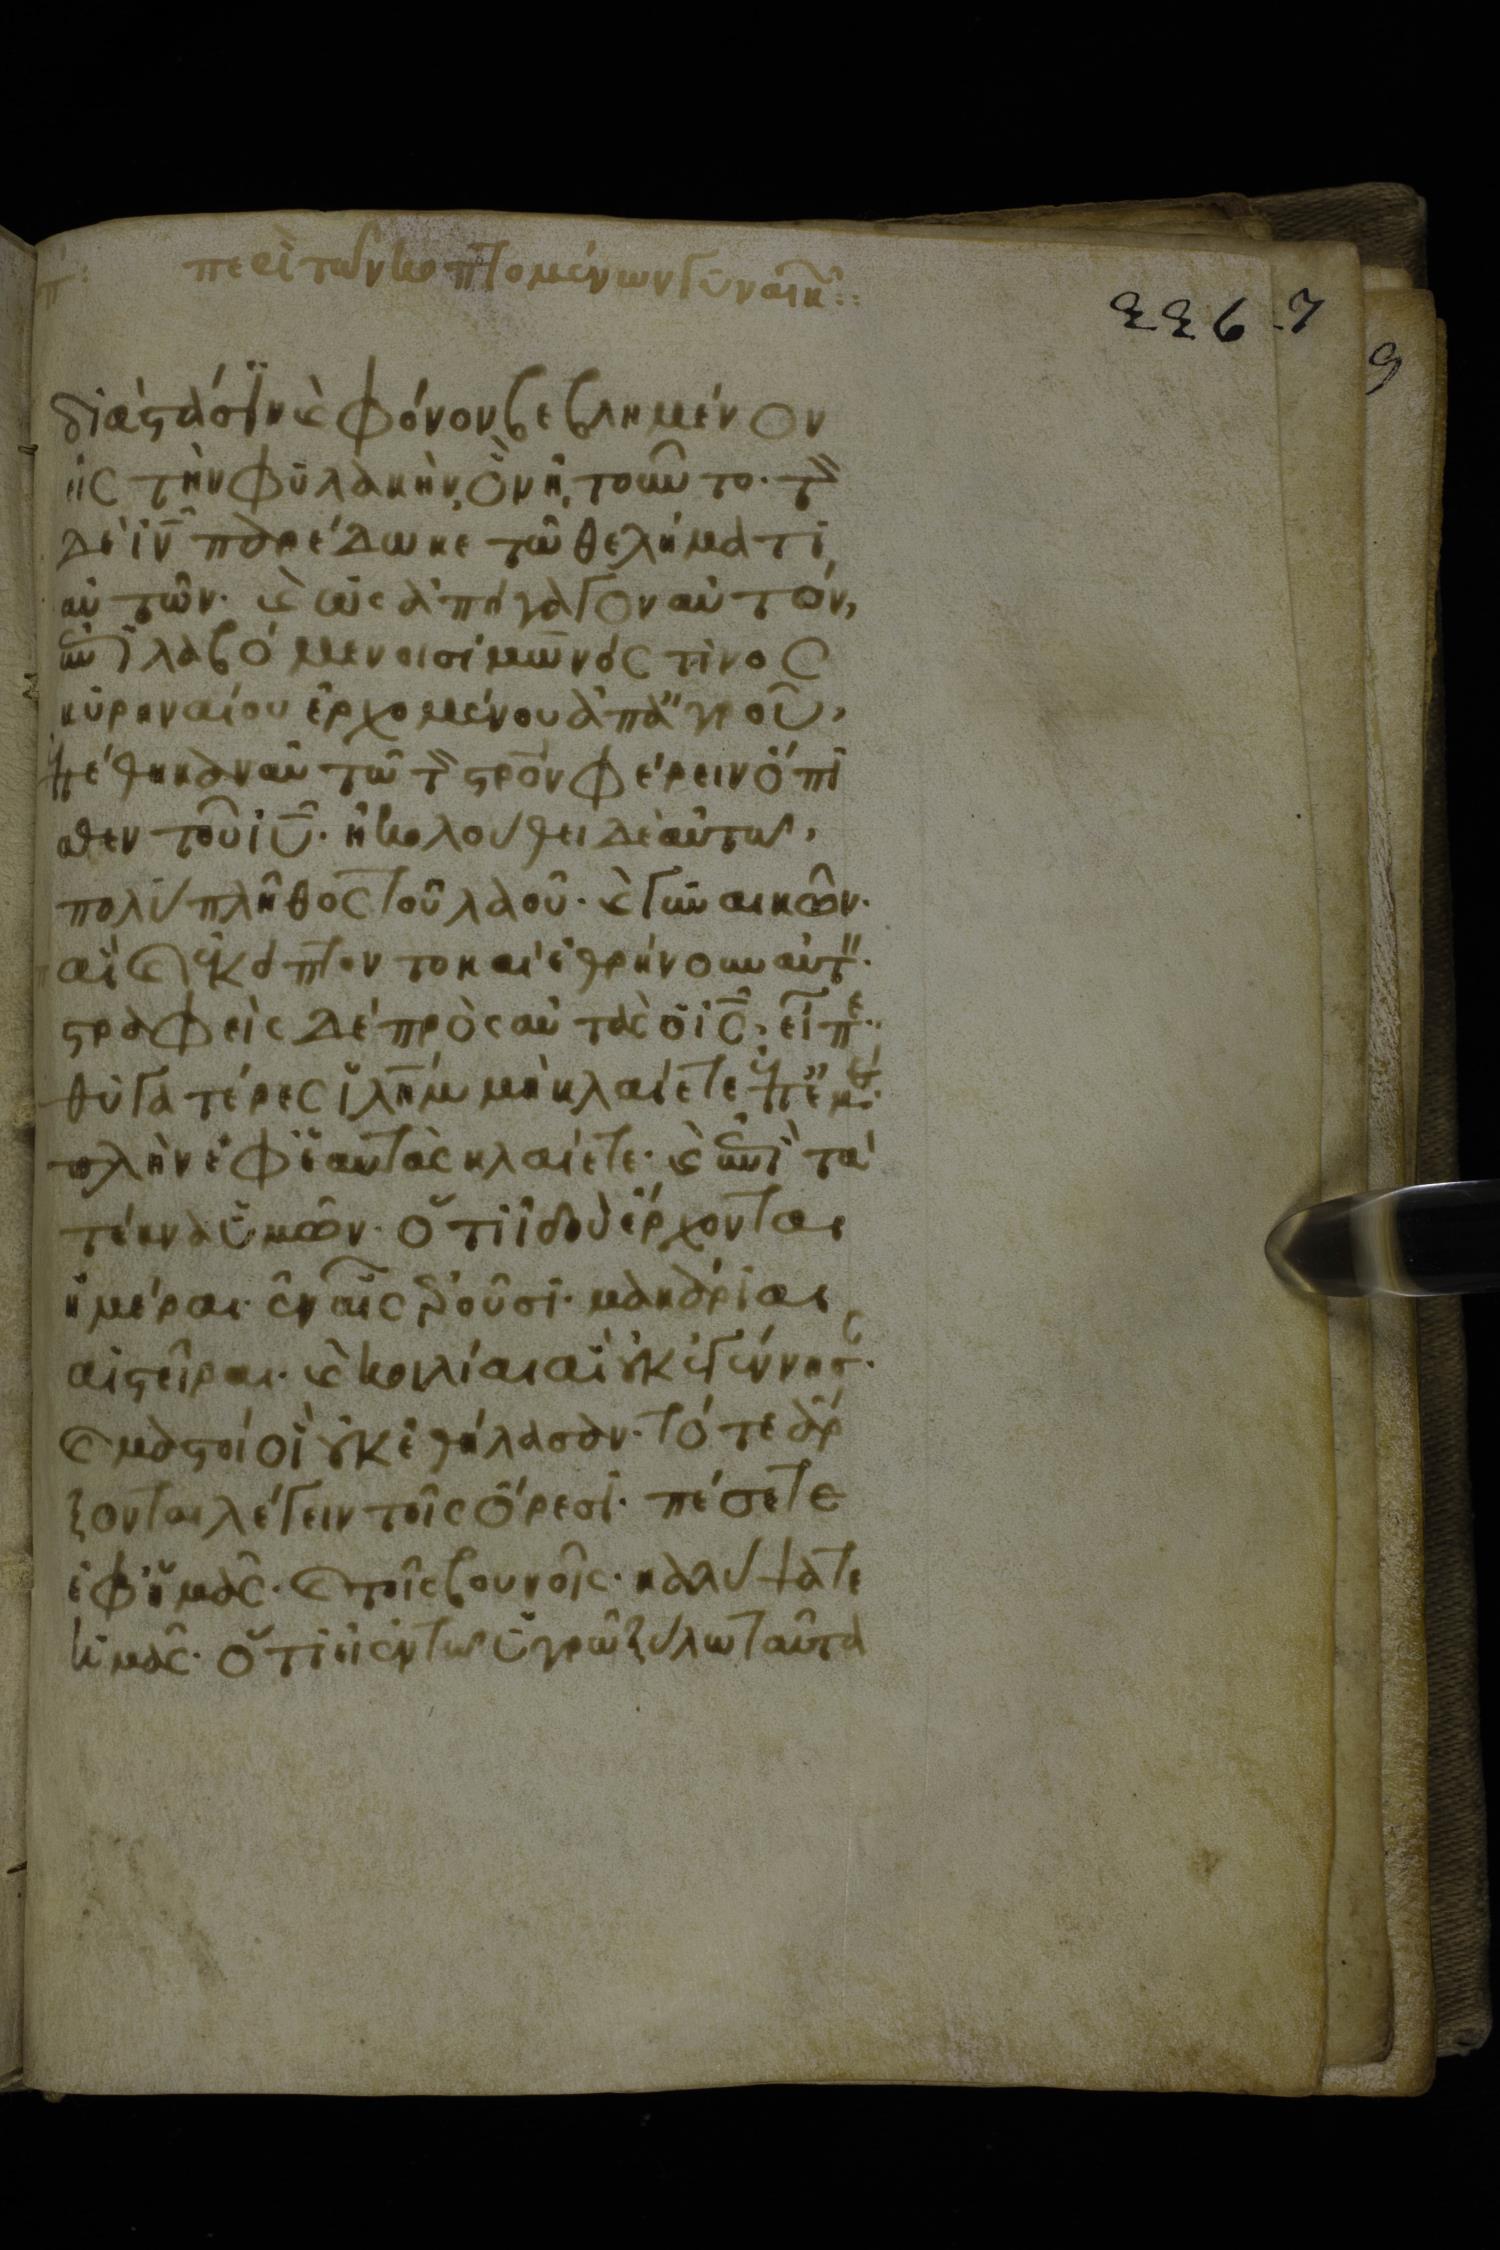 π: περὶ τῶν κοπτομένων γυναικ̑::
226 7
9
διὰ στάσϊν κ̀ φόνον βεβλημένον
εἰς τὴν φυλακὴν, ὃν ἠτοῦντο· τ̀
δὲ ἰν̅ παρέδωκε τῶ θελήματι
αὐτῶν· κ̀ ὡς ἀπήγαγον αὐτόν,
ἐπιλαβόμενοι σίμωνός τινος
κυρηναίου ἐρχομένου ἀπ' ἀγροῦ,
ἐπέθηκαν αὐτῶ τ̀ στρον φέρειν ὄπι
σθεν τοῦ ιυ̅· ἠκολούθει δὲ αὐτῶ,
πολὺ πλῆθος τοῦ λαοῦ· κ̀ γυναικῶν·
αἳ κ̀ ἐκόπτοντο καὶ ἐθρήνουν αὐτ̀·
στραφεὶς δὲ πρὸς αὐτὰς ὁ ις̅, εἶπε·
θυγατέρες ἰλημ̅ μὴ κλαίετε ἐπ' ἐμέ·
πλὴν ἐφ' ἑαυτὰς κλαίετε· κ̀ ἐπὶ τὰ
τέκνα ὑμῶν· ὅτι ἰδοὺ ἔρχονται
ἡμέραι· ἐν αἷς ἐροῦσι· μακάριαι
αἱ στεῖραι· κ̀ κοιλίαι αἳ οὐκ ἐγέννησ̀·
κ̀ μαστοὶ οἳ οὐκ ἐθήλασαν· τότε ἄρ
ξονται λέγειν τοῖς ὄρεσι· πέσετε
ἐφ' ἡμᾶς· κ̀ τοῖς βουνοῖς· καλύψατε
ἡμᾶς· ὅτι εἰ ἐν τῶ ὑγρῶ ξύλω ταῦτα